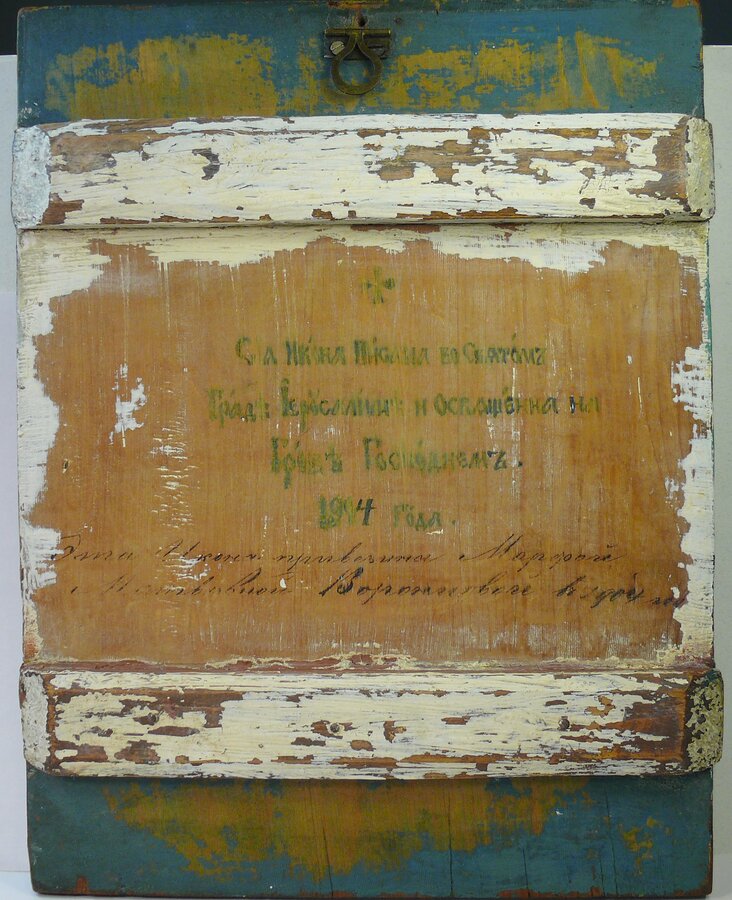 Сїа Икона Писана во Святомъ
Градѣ Їерусалимѣ и освящена на
Гробѣ Господнемъ.
1904 года.
Эта Икона привезина Марфой
Матвевной в 1904 го